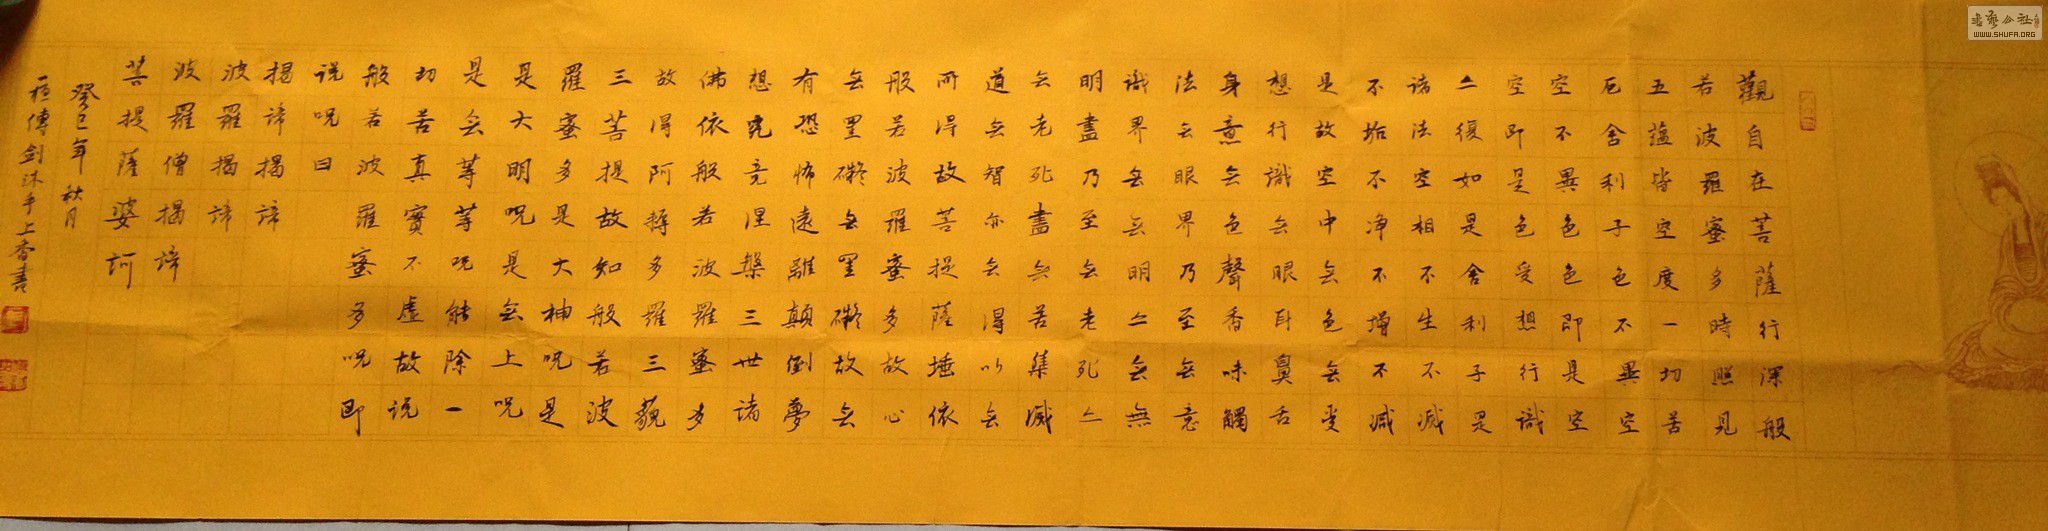 觀自在菩薩行深般
若波羅蜜多時照見
五蘊皆空度一切苦
厄舍利子色不異空
空不異色色即是空
空即是色受想行識
亦復如是舍利子是
諸法空相不生不滅
不垢不净不增不減
是故空中無色無受
想行識無眼耳鼻舌
身意無色聲香味觸
法無眼界乃至無意
識界無無明亦無無
明盡乃至無老死亦
無老死盡無苦集滅
道無智亦無得以無
所得故菩提薩埵依
般若波羅蜜多故心
無罣礙無罣礙故無
有恐怖遠離顛倒夢
想究竟涅槃三世諸
佛依般若波羅蜜多
故得阿耨多羅三藐
三菩提故知般若波
羅蜜多是大神呪是
是大明呪是無上呪
是無等等呪能除一
切苦真實不虛故說
般若波羅蜜多呪即
說呪曰
揭諦揭諦
波羅揭諦
波羅僧揭諦
菩提薩婆訶
癸巳年秋月
桓傳劍沐手上香書
WWW.SHUFA.ORG